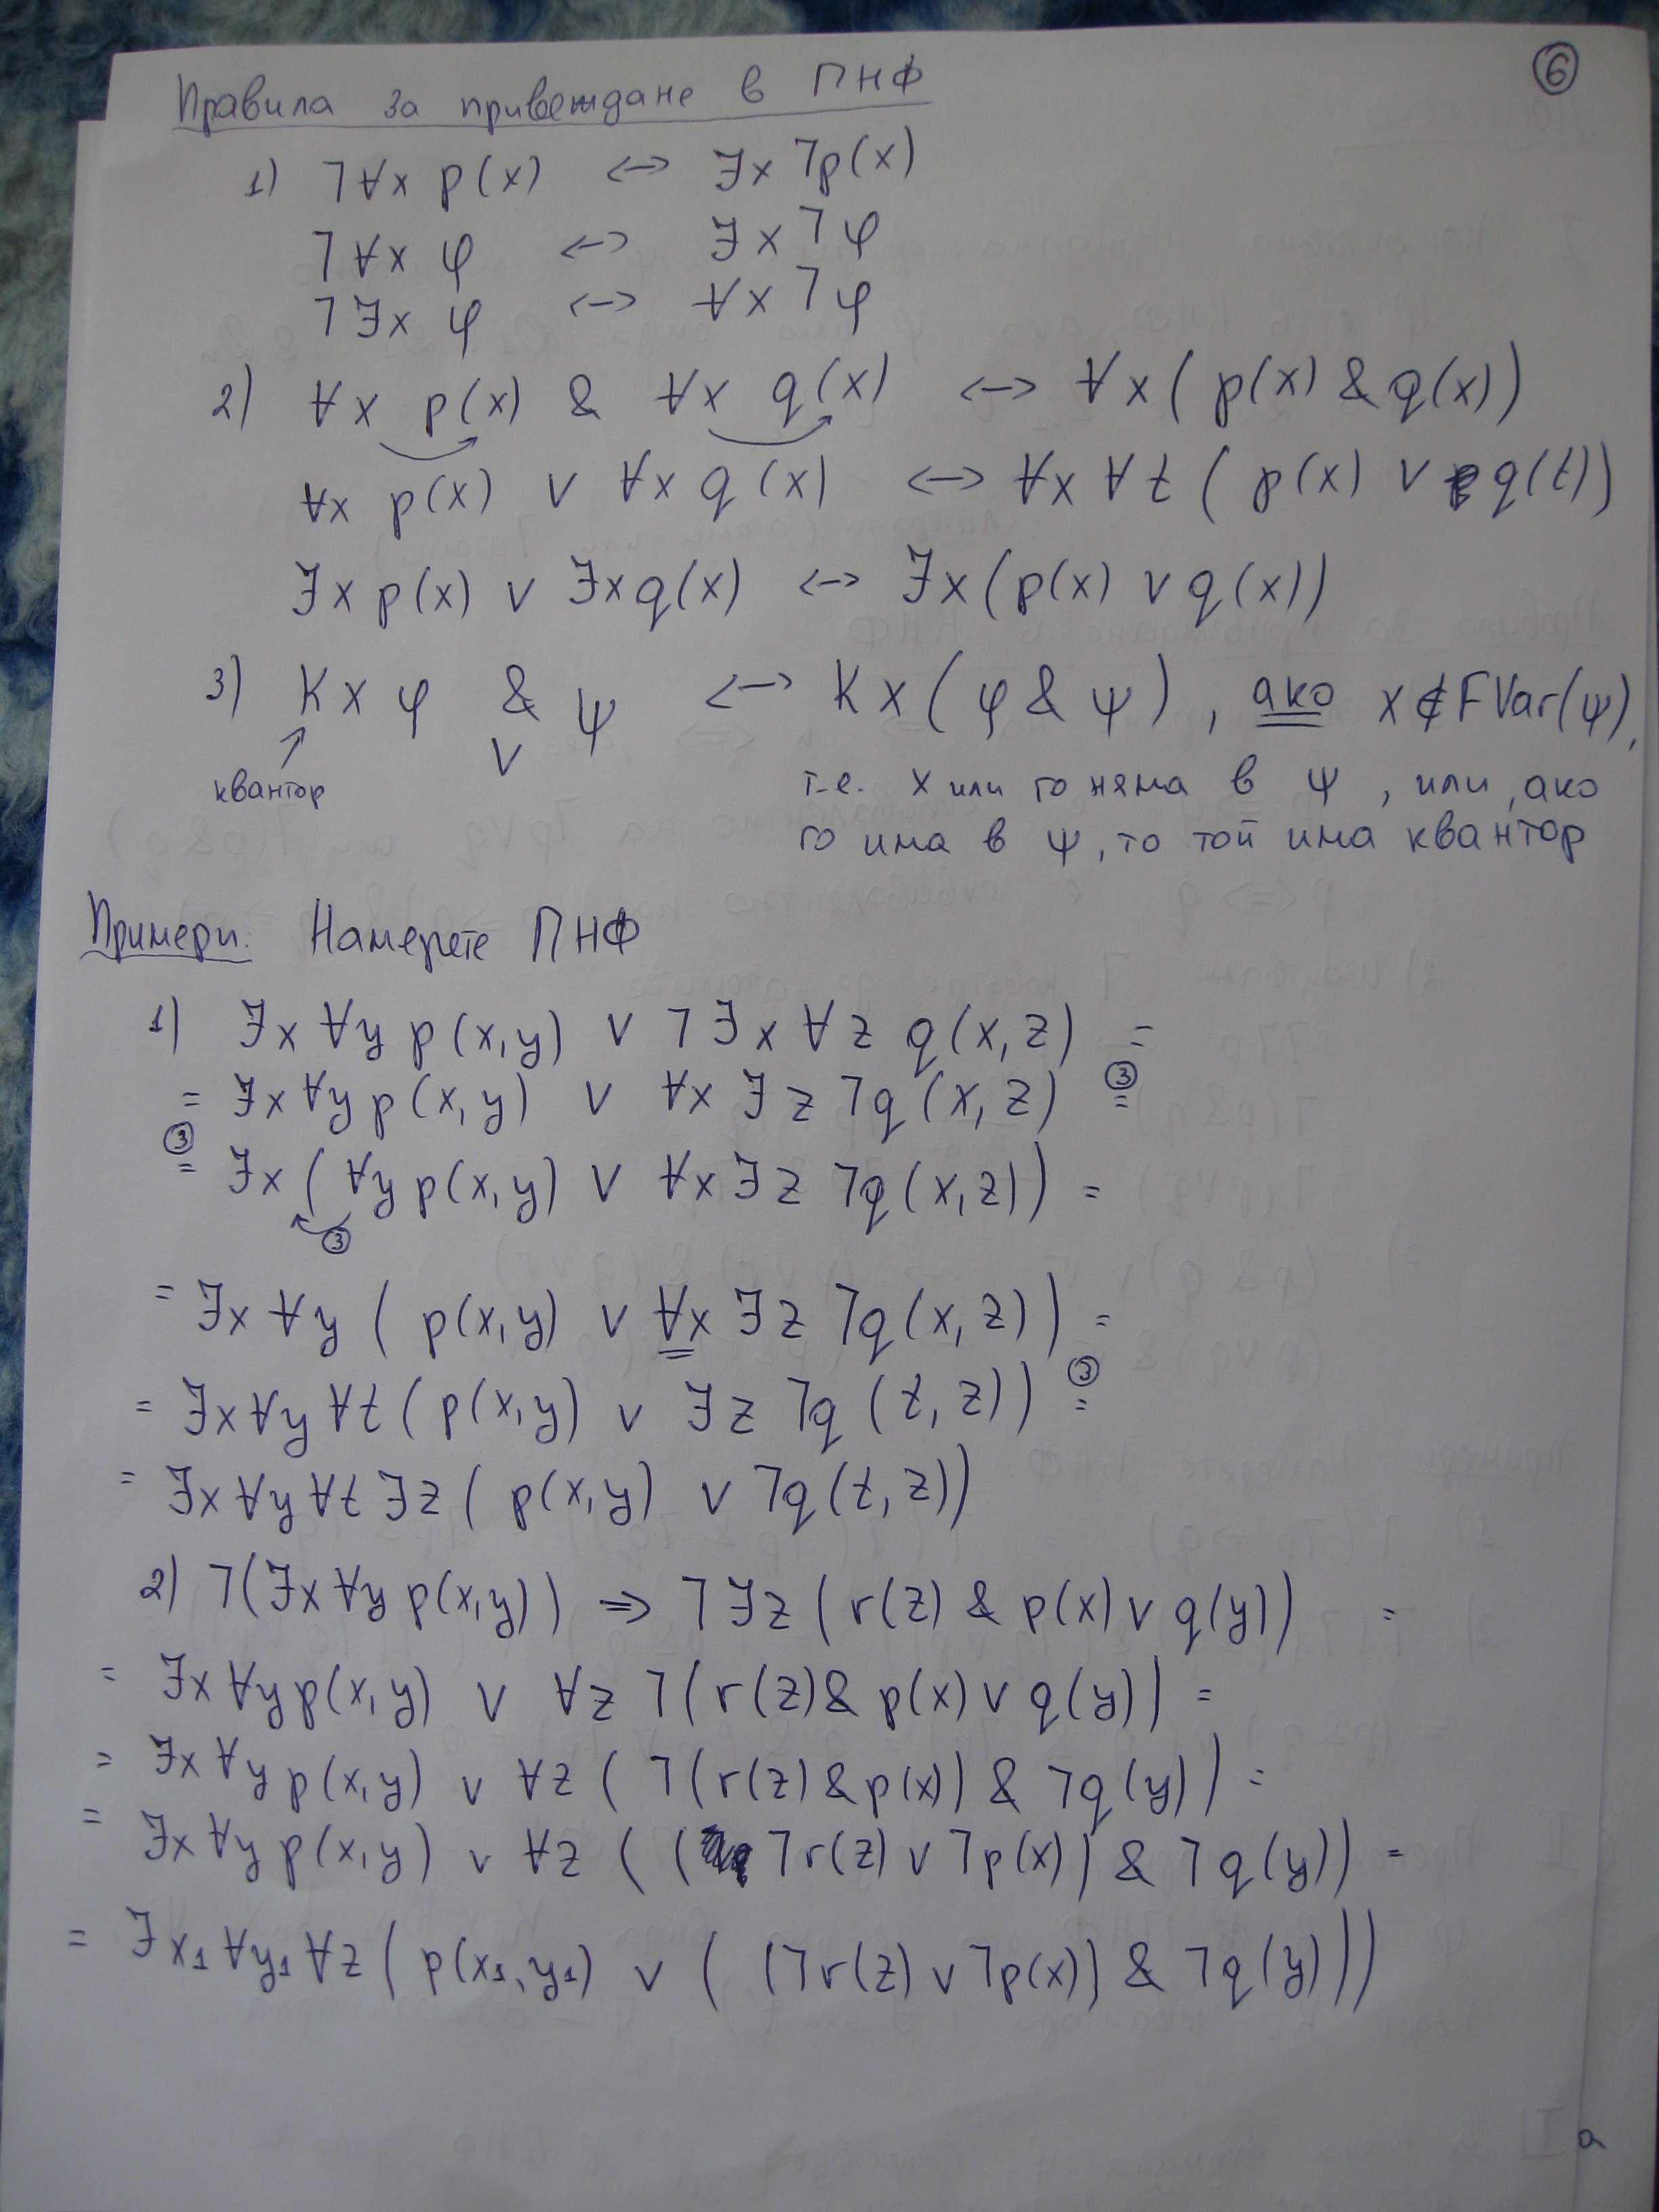 6
Правила за привеждане в ПНФ
1) ⅂∀x p(x) <-> ∃x ⅂p(x)
⅂∀x φ <-> ∃x ⅂φ
⅂∃x φ <-> ∀x ⅂φ
2) ∀x p(x) & ∀x q(x) <-> ∀x(p(x) & q(x))
∀x p(x) ∨ ∀x q(x) <-> ∀x ∀t (p(x) ∨ q(t))
∃x p(x) ∨ ∃x q(x) <-> ∃x(p(x) ∨ q(x))
3) Kx φ & ψ <-> Kx(φ & ψ), ако x∉FVar(ψ),
∨
квантор
т.е. x или го няма в ψ, или, ако
го има в ψ, то той има квантор
Примери: Намерете ПНФ
1) ∃x ∀y p(x,y) ∨ ⅂∃x ∀z q(x,z) =
= ∃x ∀y p(x,y) ∨ ∀x ∃z ⅂q(x,z) ③=
③= ∃x (∀y p(x,y) ∨ ∀x ∃z ⅂q(x,z)) =
③
= ∃x ∀y (p(x,y) ∨ ∀x ∃z ⅂q(x,z)) =
= ∃x ∀y ∀t (p(x,y) ∨ ∃z ⅂q(t,z)) ③=
= ∃x ∀y ∀t ∃z (p(x,y) ∨ ⅂q(t,z))
2) ⅂(∃x ∀y p(x,y)) => ⅂∃z (r(z) & p(x) ∨ q(y)) =
= ∃x ∀y p(x,y) ∨ ∀z ⅂(r(z) & p(x) ∨ q(y)) =
= ∃x ∀y p(x,y) ∨ ∀z (⅂(r(z) & p(x)) & ⅂q(y)) =
= ∃x ∀y p(x,y) ∨ ∀z ((⅂r(z) ∨ ⅂p(x)) & ⅂q(y)) =
= ∃x₁ ∀y₁ ∀z (p(x₁,y₁) ∨ ((⅂r(z) ∨ ⅂p(x)) & ⅂q(y)))
a